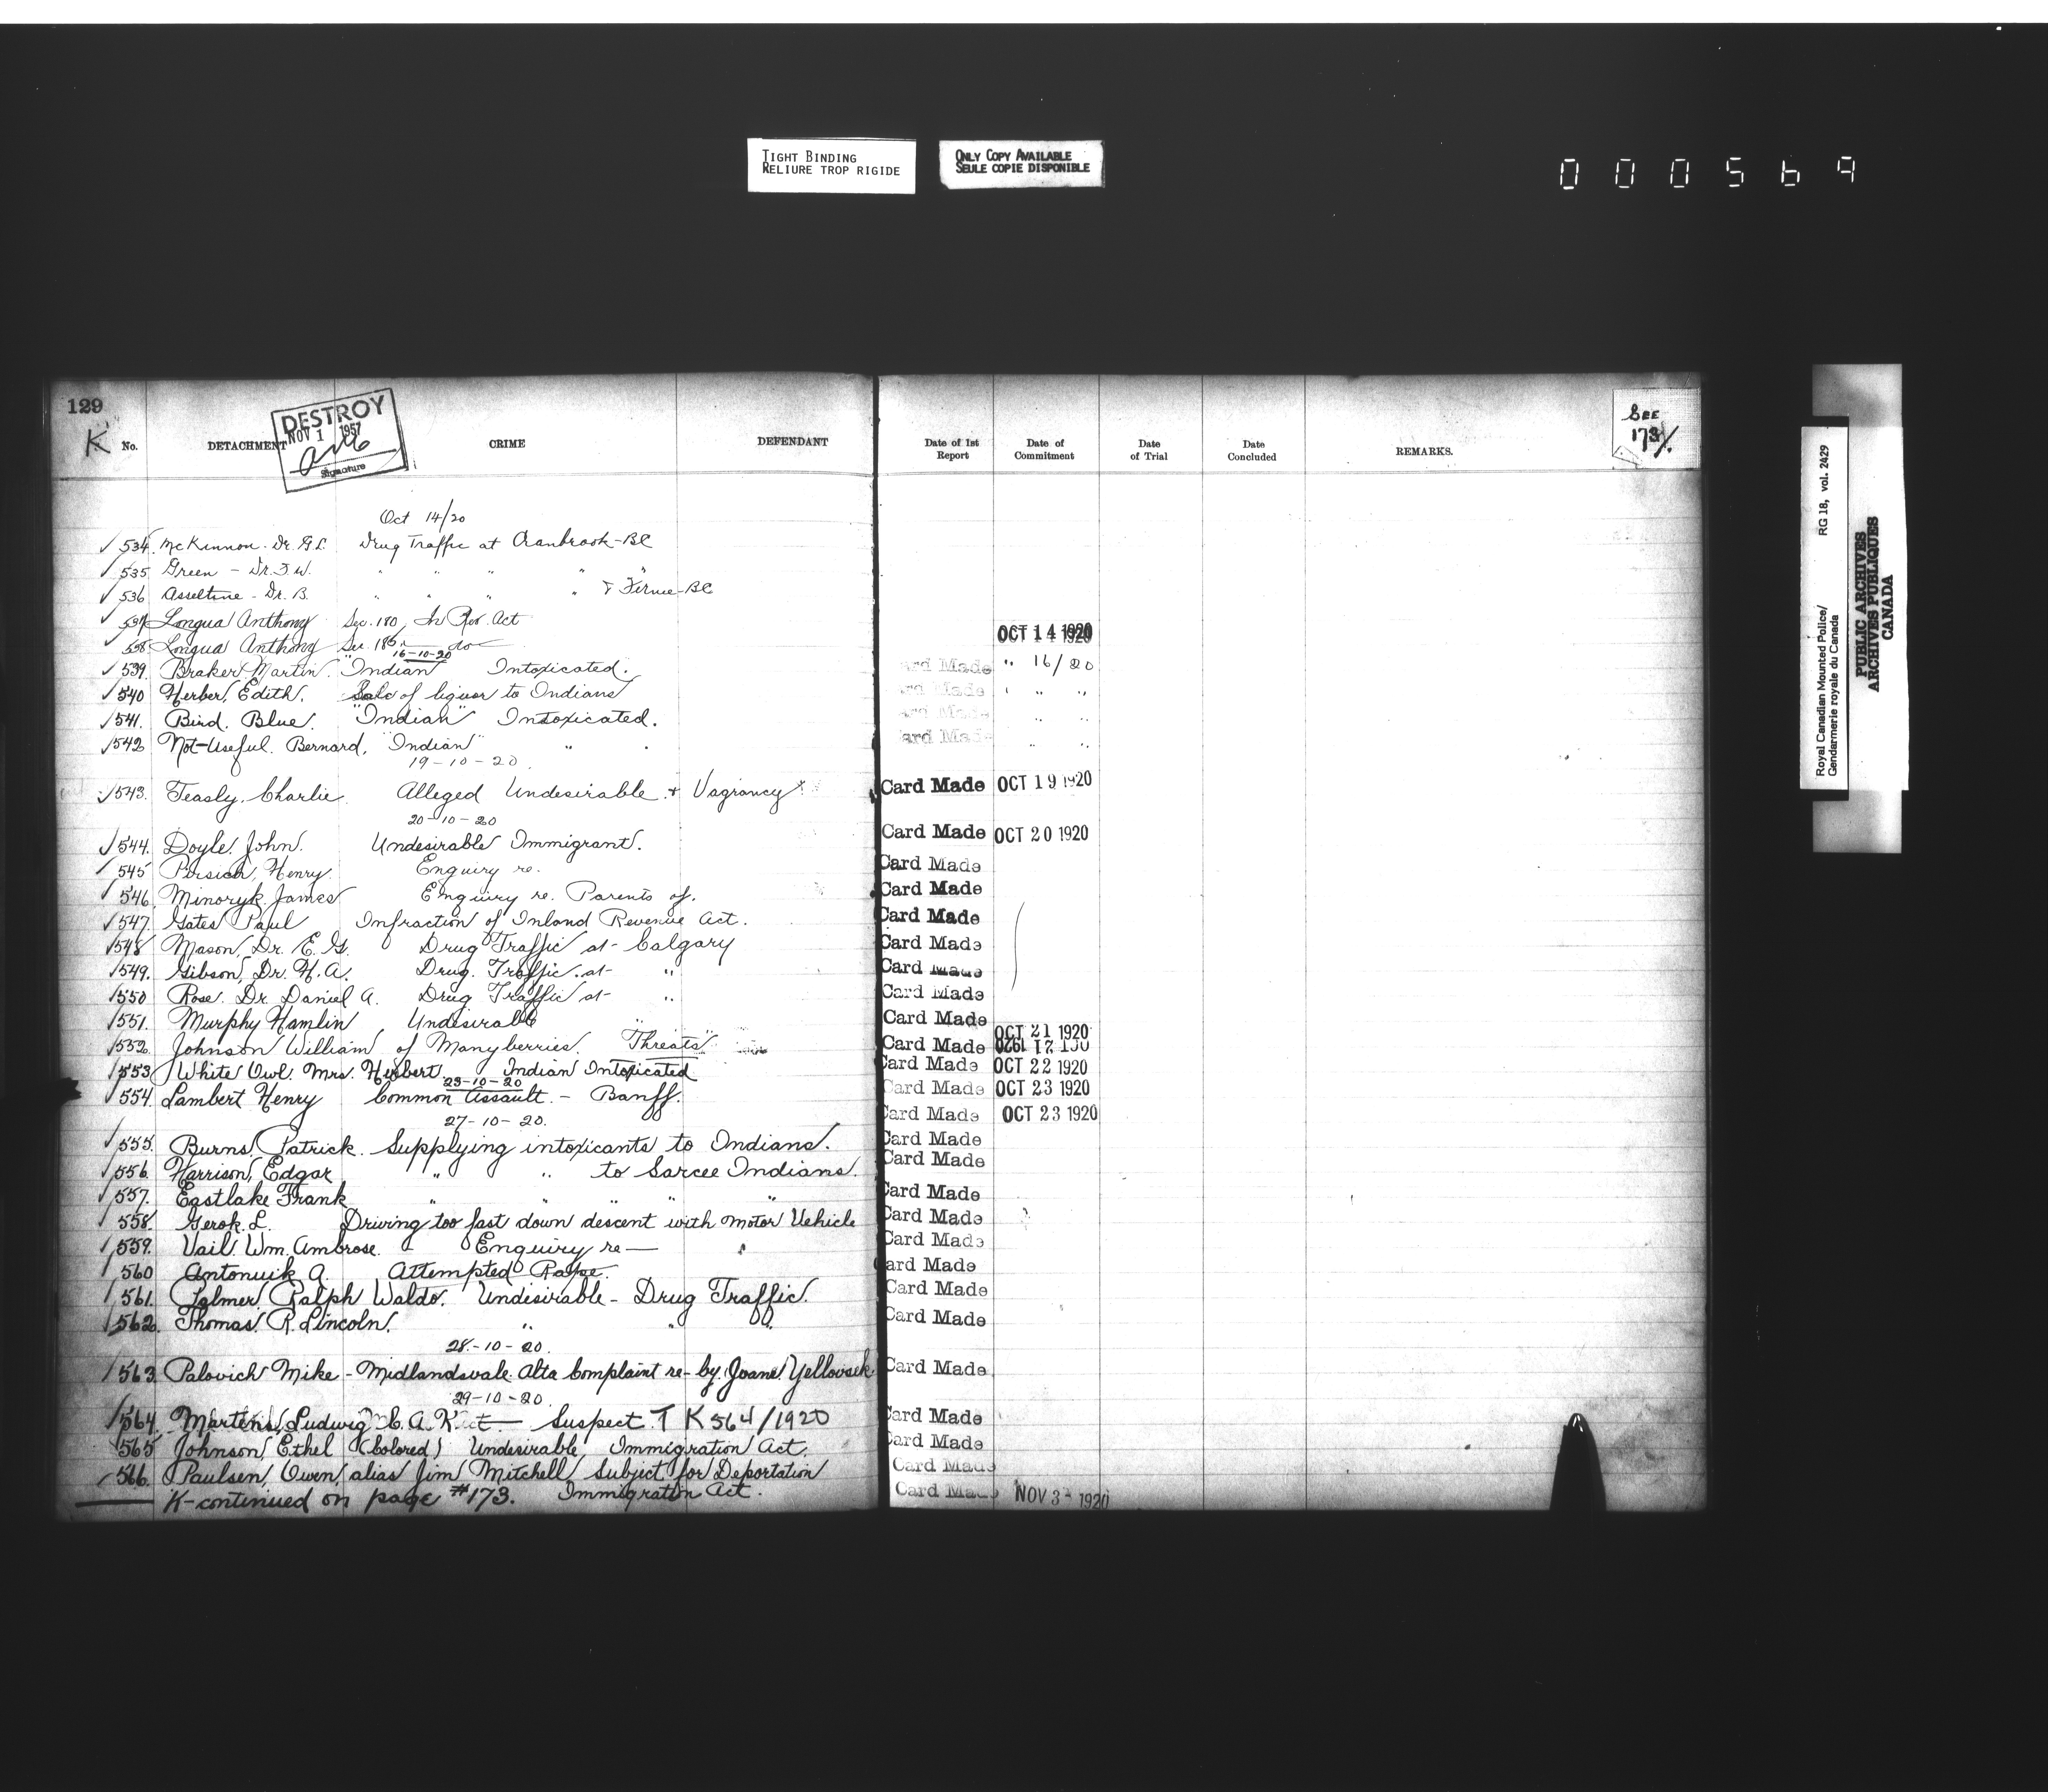 TIGHT BINDING
RELIURE TROP RIGIDE
ONLY COPY AVAILABLE
SEULE COPIE DISPONIBLE
000569
129
K
DESTROY
NOV 1 1957
Signature
No. DETACHMENT CRIME DEFENDANT Date of 1st Report Date of Commitment Date of Trial Date Concluded REMARKS.
SEE
173/
Oct 14/20
534. McKinnon. Dr. G.L. Drug Traffic at Cranbrook-BC
535 Green - Dr. F.W. " " " " "
536 Asseltine - Dr. B. " " " " & Fernie-BC
537 Longua Anthony Sec. 180, In Rev. Act
OCT 14 1920
538 Longua Anthony Sec. 185 do
16-10-20
539 Braker, Martin. "Indian" Intoxicated. Card Made " 16/20
540 Herber, Edith. Sale of liquor to Indians Card Made " " "
541. Bird. Blue. "Indian" Intoxicated. Card Made " "
542 Not-Useful. Bernard, "Indian" " Card Made " "
19-10-20.
543. Teasly, Charlie. Alleged Undesirable. & Vagrancy Card Made OCT 19 1920
20-10-20
544. Doyle, John. Undesirable Immigrant. Card Made OCT 20 1920
545 Persich, Henry Enquiry re. Card Made
546. Minoryk, James Enquiry re. Parents of. Card Made
547. Gates Paul Infraction of Inland Revenue Act. Card Made
548 Mason, Dr. E. G. Drug Traffic at- Calgary Card Made
549. Gibson, Dr. H.A. Drug. Traffic. at- " Card Made
550 Rose. Dr. Daniel A. Drug Traffic at- " Card Made
551. Murphy Hamlin Undesirable Card Made OCT 21 1920
552. Johnson William of Manyberries. "Threats" Card Made OCT 21 1920
553 White Owl. Mrs. Herbert. Indian Intoxicated Card Made OCT 22 1920
23-10-20
554. Lambert Henry Common Assault. - Banff. Card Made OCT 23 1920
27-10-20.
Card Made OCT 23 1920
555. Burns, Patrick. Supplying intoxicants to Indians. Card Made
556. Harrison, Edgar " " to Sarcee Indians. Card Made
557. Eastlake Frank " " " " " Card Made
558. Gerok. L. Driving too fast down descent with Motor Vehicle Card Made
559. Vail. Wm. Ambrose. Enquiry re— Card Made
560 Antonuik A. Attempted Rape. Card Made
561. Palmer, Ralph Waldo. Undesirable - Drug Traffic. Card Made
562. Thomas, R. Lincoln. " " " Card Made
28-10-20.
563. Palovich Mike - Midlandvale. Alta Complaint re- by Joane Yellovsek Card Made
29-10-20.
564. Martens, Ludwig C. A. K. Suspect. T K 564/1920 Card Made
565 Johnson, Ethel (Colored) Undesirable, Immigration Act. Card Made
566. Paulsen, Owen, alias Jim Mitchell Subject for Deportation Card Made
K-continued on page #173. Immigration Act. Card Made NOV 3- 1920
Royal Canadian Mounted Police/
Gendarmerie royale du Canada
RG 18, vol. 2429
PUBLIC ARCHIVES
ARCHIVES PUBLIQUES
CANADA